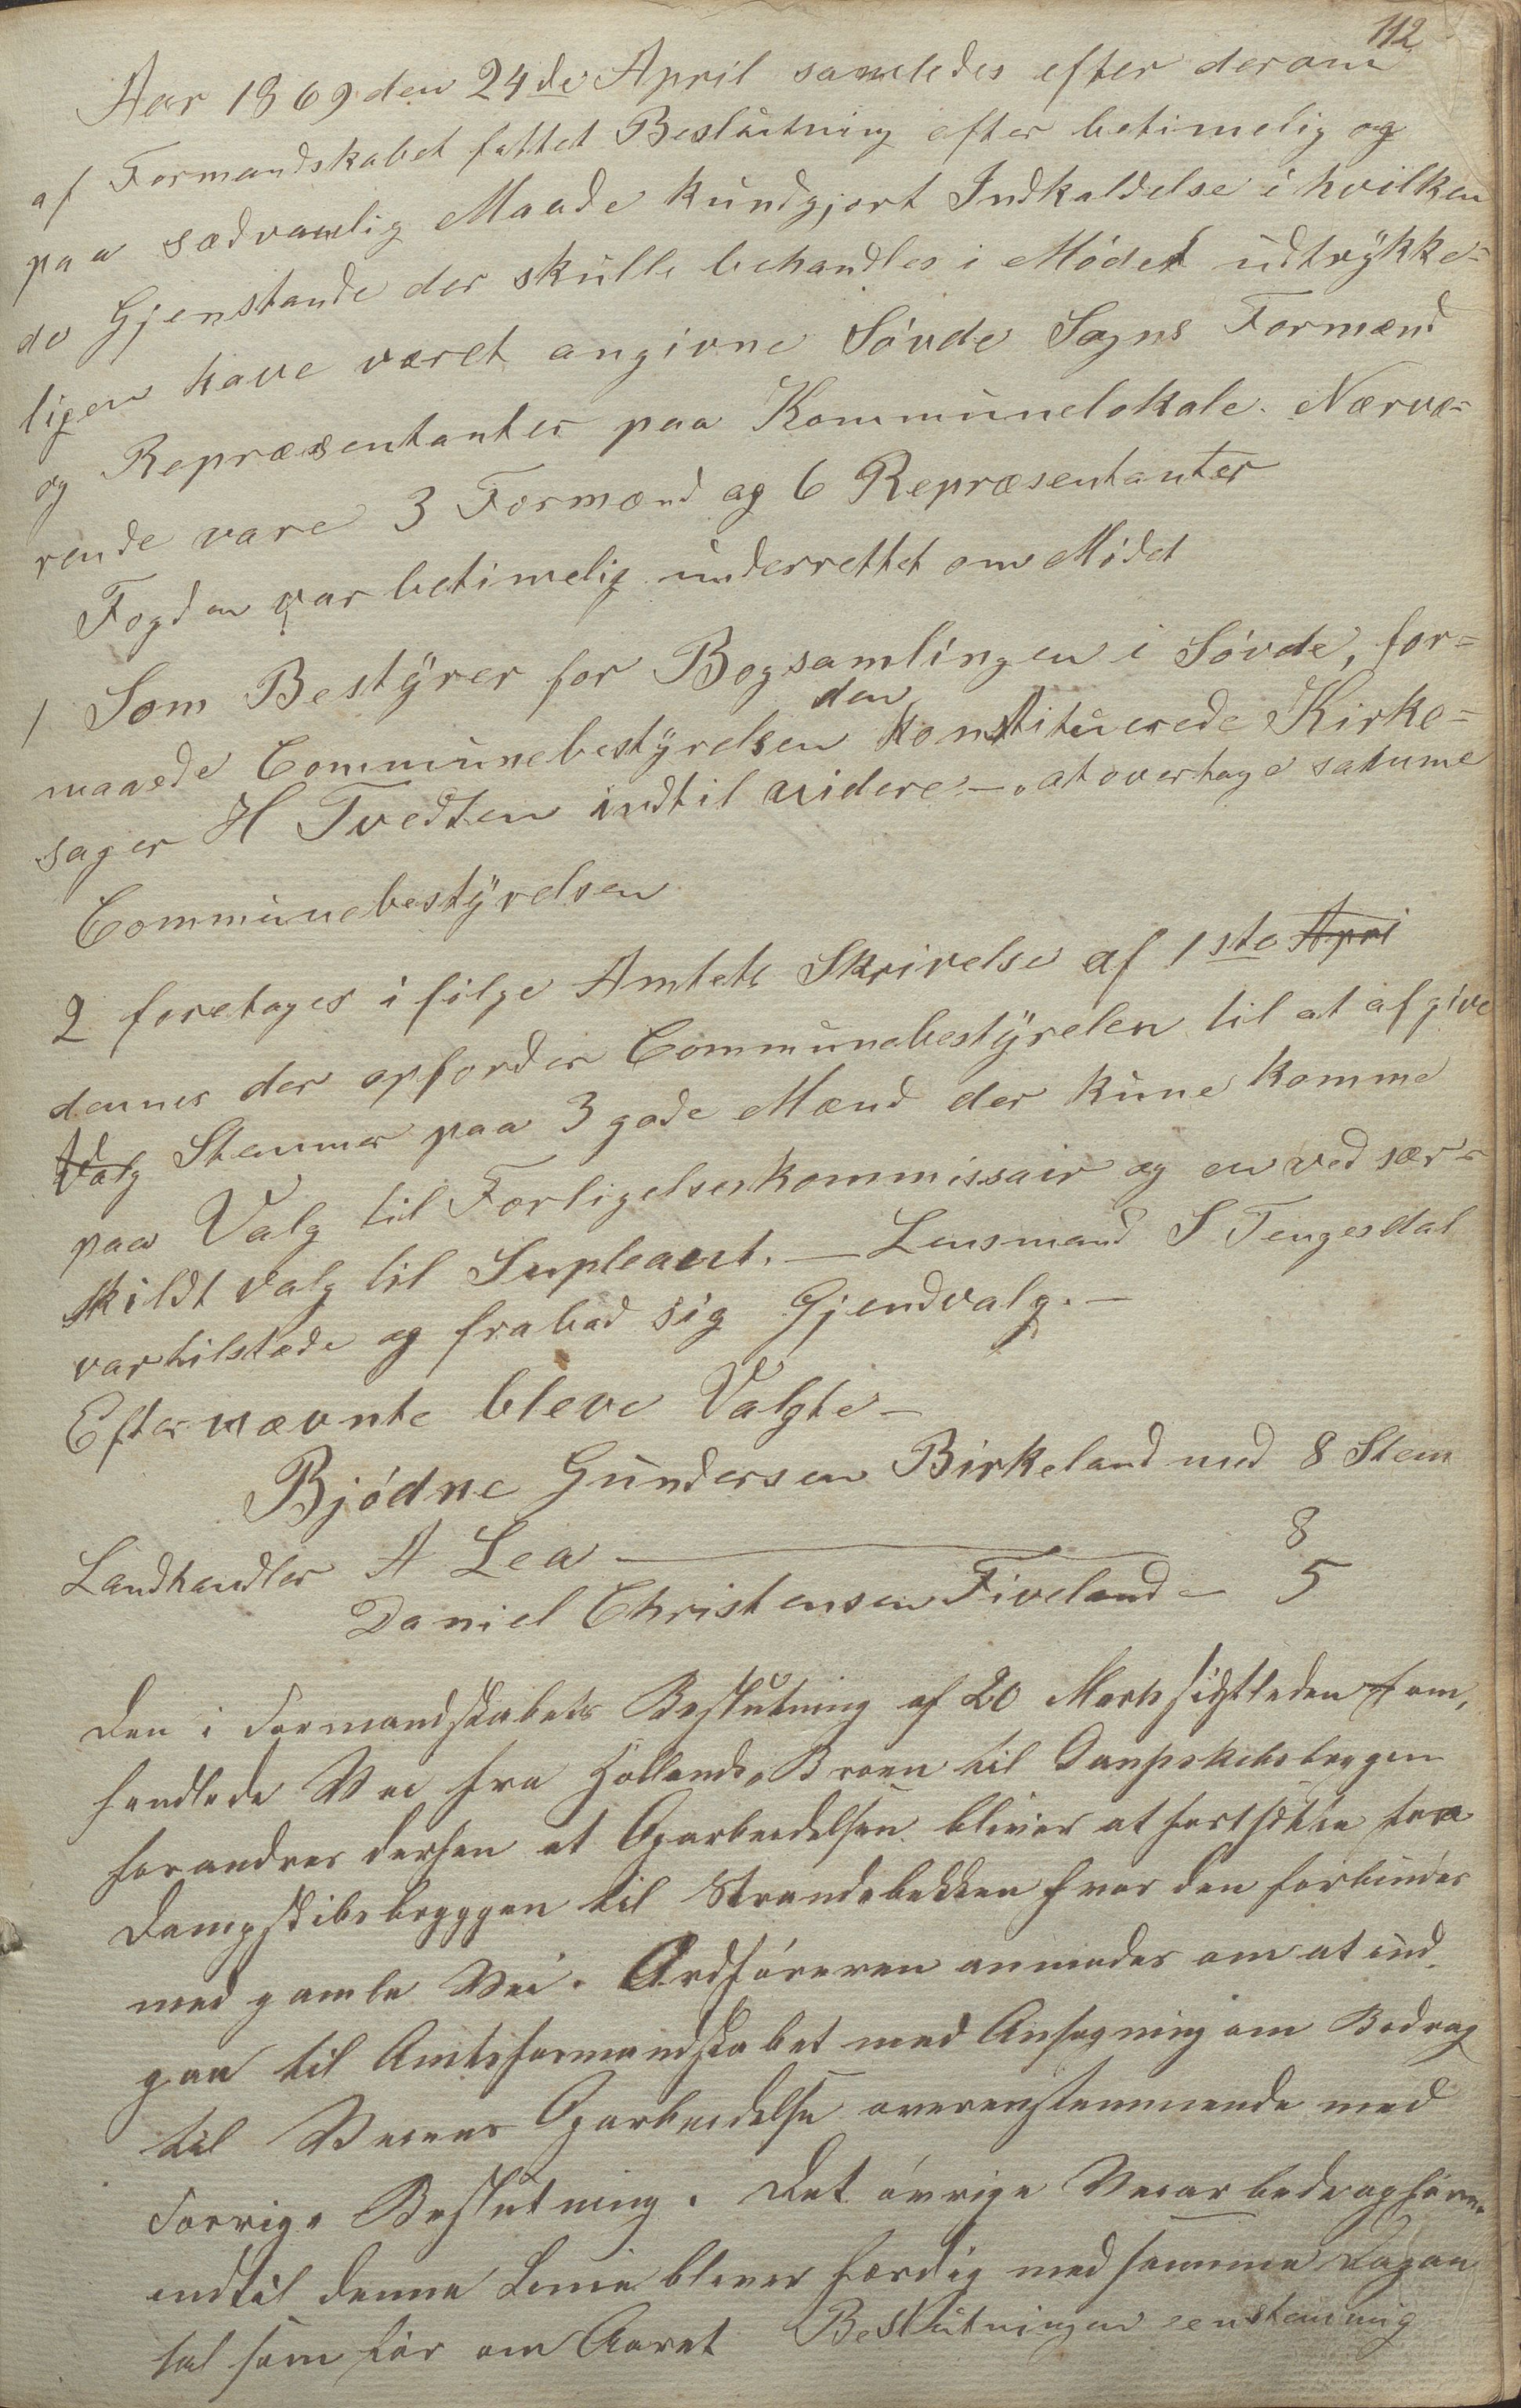 112
Aar 1869 den 24de April samledes efter derom
af Formandskabet fattet Beslutning efter betimelig og
paa sædvanlig Maade kundgjort Indkaldelse i hvilken
de Gjenstande der skulle behandles i Mødet udtrykke=
ligen have været angivne Søvde Sogns Formænd
og Repræsentanter paa Kommunelokale. Nærvæ=
rende vare 3 Formænd og 6 Repræsentanter
Fogden var betimelig underrettet om Mødet
1 Som Bestyrer for Bogsamlingen i Søvde, for=
maaede Communebestyrelsen den Konstituerede Kirke=
sager H Tvedten indtil videre -, at overtage samme
Communebestyrelsen
2 foretages i følge Amtets Skrivelse af 1ste Apri
dennes der opforder Communebestyrelen til at afgive
Valg Stemmer paa 3 gode Mænd der kune komme
paa Valg til Forligelseskommissair og en ved sær=
skildt valg til Supleant. - Lensmand S Tengesdal
var tilstæde og frabad sig Gjendvalg. -
Efternævnte bleve Valgte -
Bjødne Gundersen Birkeland med 8 Stem
Landhandler A Lea - 8
Daniel Christensen Fiveland - 5
Den i Formandskabets Beslutning af 20 Marts sidstleden om,
handlede Vei fra Hollands Broen til Dampskibsbryggen
forandres derhen at Oparbeidelsen bliver at fortsætte fra
Dampskibsbryggen til Strandebekken hvor den forbindes
med gamle Vei. Ordføreren anmodes om at ind
gaa til Amtsformandskabet med Ansøgning om Bedrag
til Veiens Oparbeidelse overenstemmende med
Forrige Beslutning. Det øvrige Veiarbede
indtil denne Linie bliver færdig med samme Dagan
tal som før om Aaret Beslutningen eenstemmig